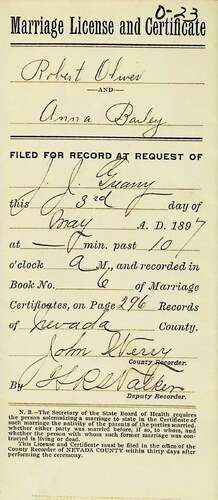 0-23
Marriage License and Certificate
Robert Oliver
—AND—
Anna Bailey
FILED FOR RECORD AT REQUEST OF
J. J.
this 3rd day of
May A. D. 1897
at — min. past 10
o'clock A M., and recorded in
Book No. 6 of Marriage
Certificates, on Page 296 Records
of Nevada County.
John
County Recorder.
By Walker
Deputy Recorder.
N. B.—The Secretary of the State Board of Health requires
the person solemnizing a marriage to state in the Certificate of
such marriage the nativity of the parents of the parties married,
whether either party was married before, if so, to whom, and
whether the person with whom such former marriage was con-
tracted is living or dead.
This License and Certificate must be filed in the office of the
County Recorder of NEVADA COUNTY within thirty days after
performing the ceremony.